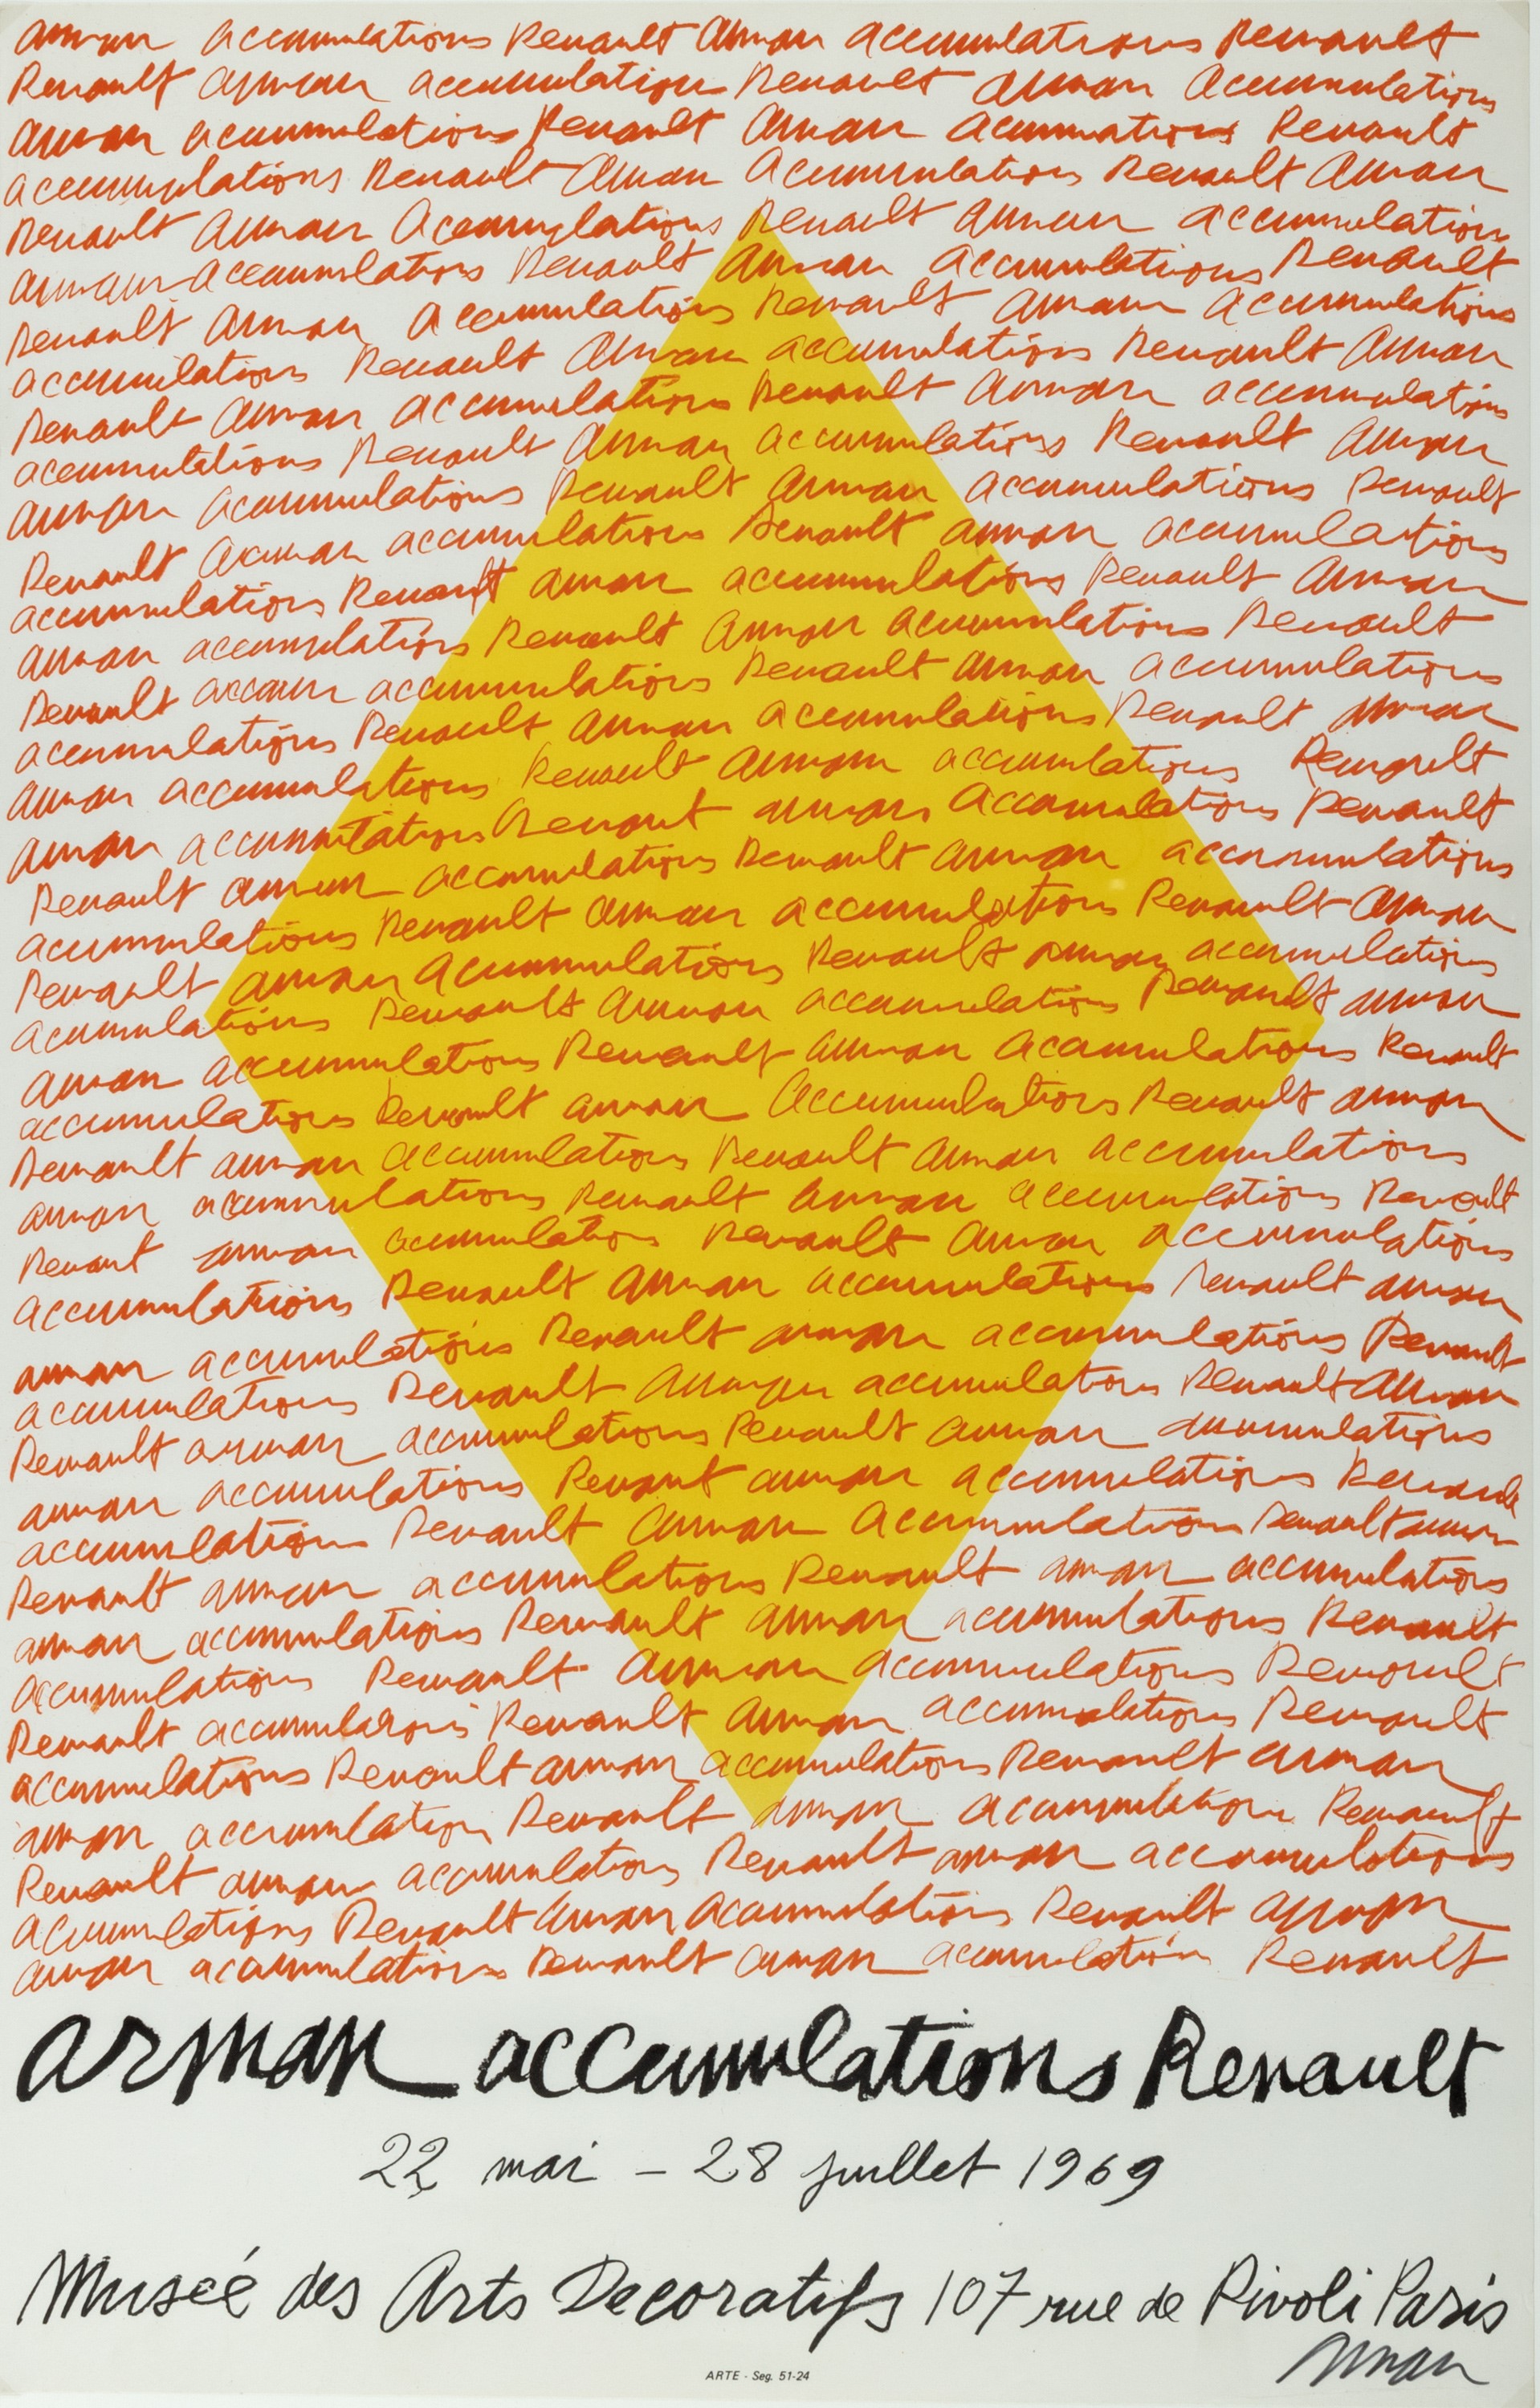 arman accumulations Renault arman accumulations Renault
Renault arman accumulation Renault arman accumulations
arman accumulations Renault arman acummations Renault
accumulations Renault arman accumulations Renault arman
Renault arman accumulations Renault arman accumulations
arman accumulations Renault arman accumulations Renault
Renault arman accumulations Renault arman accumulations
accumulations Renault arman accumulations Renault arman
Renault arman accumulations Renault arman accumulations
accumulations Renault arman accumulations Renault arman
arman accumulations Renault arman accumulations Renault
Renault arman accumulations Renault arman accumulations
accumulations Renault arman accumulations Renault arman
arman accumulations Renault arman accumulations Renault
Renault arman accumulations Renault arman accumulations
accumulations Renault arman accumulations Renault arman
arman accumulations Renault arman accumulations Renault
arman accumulations Renaut arman accumulations Renault
Renault arman accumulations Renault arman accumulations
accumulations Renault arman accumulations Renault arman
Renault arman accumulations Renault arman accumulations
accumulations Renault arman accumulations Renault arman
arman accumulations Renault arman accumulations Renault
accumulations Renault arman accumulations Renault arman
Renault arman accumulations Renault arman accumulations
arman accumulations Renault arman accumulations Renault
Renaut arman accumulations Renault arman accumulations
accumulations Renault arman accumulations Renault arman
arman accumulations Renault arman accumulations Renault
accumulations Renault arman accumulations Renault arman
Renault arman accumulations Renault arman accumulations
arman accumulations Renaut arman accumulations Renault
accumulations Renault arman accumulations Renault arman
Renault arman accumulations Renault arman accumulations
arman accumulations Renault arman accumulations Renault
accumulations Renault arman accumulations Renault
Renault accumulations Renault arman accumulations Renault
accumulations Renault arman accumulations Renault arman
arman accumulation Renault arman accumulation Renault
Renault arman accumulations Renault arman accumulations
accumulations Renault arman accumulations Renault arman
arman accumulations Renault arman accumulation Renault
arman accumulations Renault
22 mai - 28 juillet 1969
Musée des Arts Decoratifs 107 rue de Rivoli Paris
arman
ARTE - Seg. 51-24